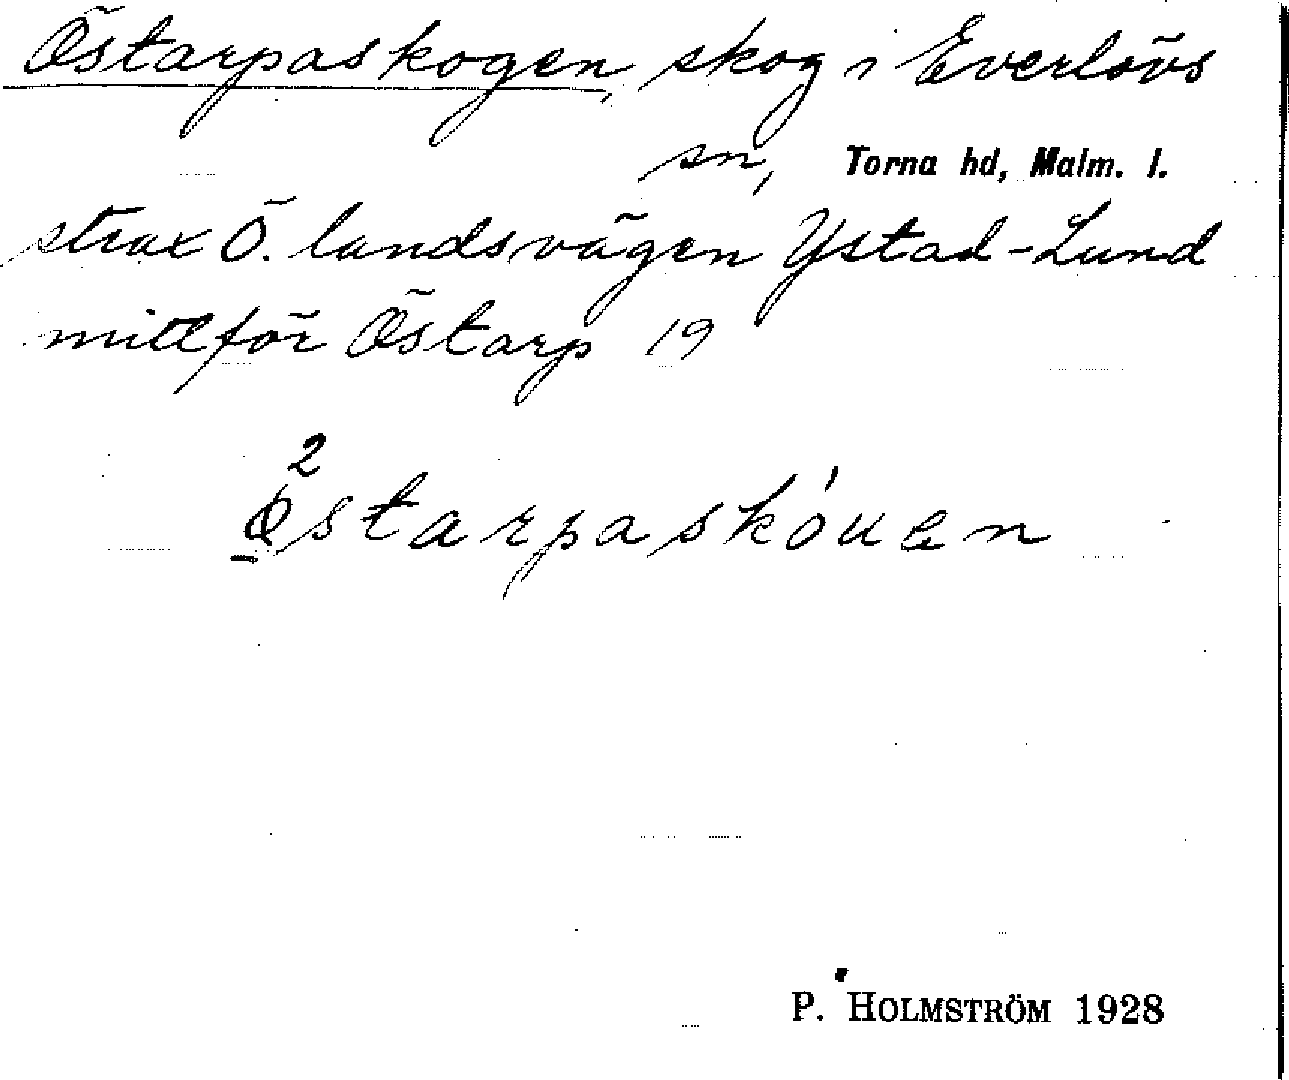 Östarpaskogen, skog i Everlövs
sn, Torna hd, Malm. l.
strax Ö. landsvägen Ystad-Lund
mittför Östarp 19
2
Östarpaskóuen
P. HOLMSTRÖM 1928